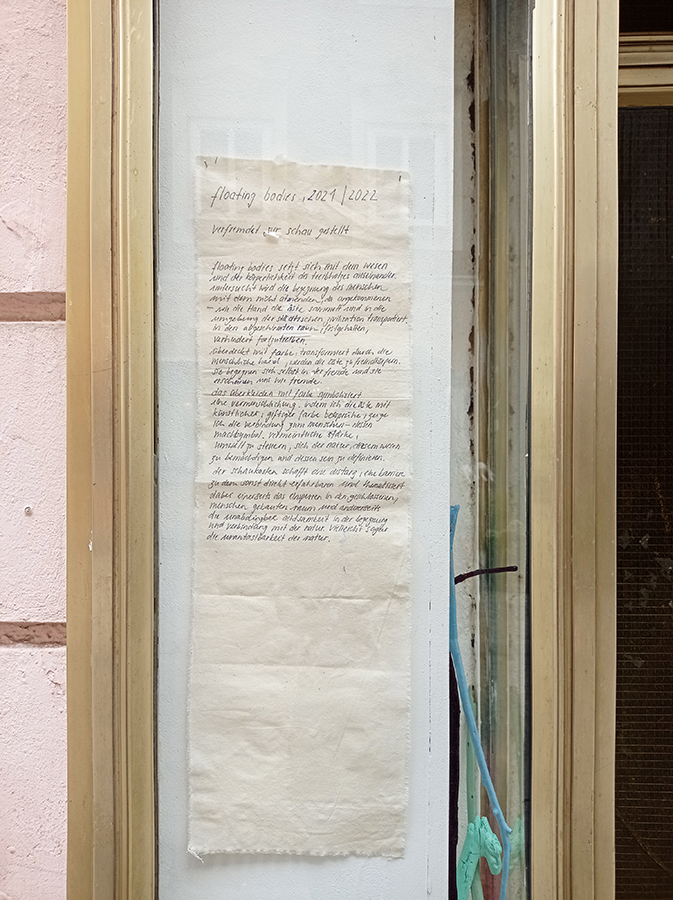 floating bodies, 2021 | 2022
verfremdet zur schau gestellt
floating bodies setzt sich mit dem wesen
und der körperlichkeit des treibholzes auseinander.
untersucht wird die begegnung des menschen
mit dem nicht atmenden, da angekommenen
– wo die hand die äste sammelt und in die
umgebung der städtischen zivilisation transportiert
in den abgeschirmten raum, festgehalten,
verhindert fortzutreiben.
überdeckt mit farbe, transformiert durch die
menschliche hand, werden die äste zu fremdkörpern.
sie begegnen sich selbst in der fremde und sie
erscheinen uns wie fremde.
das überkleiden mit farbe symbolisiert
eine vermenschlichung. indem ich die äste mit
künstlicher, giftiger farbe besprühe, zeige
ich die verbindung zum menschen – dessen
machtsymbol. vermeintliche stärke,
umwelt zu steuern, sich der natur, diesem wesen
zu bemächtigen und dessen sein zu definieren.
der schaukasten schafft eine distanz, eine barriere
zu dem sonst direkt erfahrbaren und thematisiert
dabei einerseits das einsperren in den geschlossenen,
menschen gebauten raum und andrerseits
die unabdingbare achtsamkeit in der begegnung
und verbindung mit der natur. vielleicht sogar
die unantastbarkeit der natur.